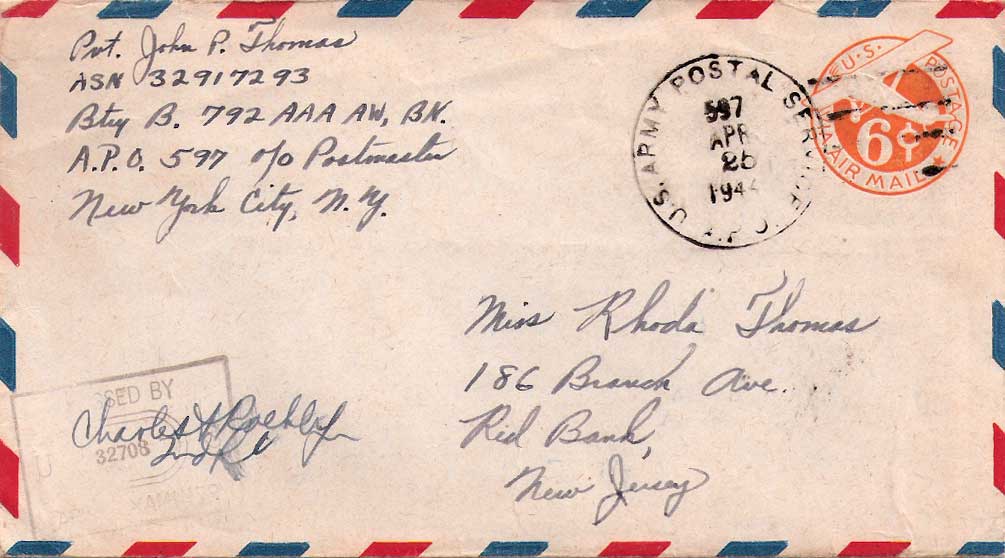 Pvt. John P. Thomas
ASN 32917293
Btry B. 792 AAA AW, BN.
A.P.O. 597 c/o Postmaster
New York City, N.Y.
U.S. ARMY POSTAL SERVICE
A.P.O.
597
APR
1944
U.S. POSTAGE
6¢
VIA AIR MAIL
Miss Rhoda Thomas
186 Branch Ave.
Red Bank,
New Jersey
SED BY
Charles
32708
2nd Lt
U